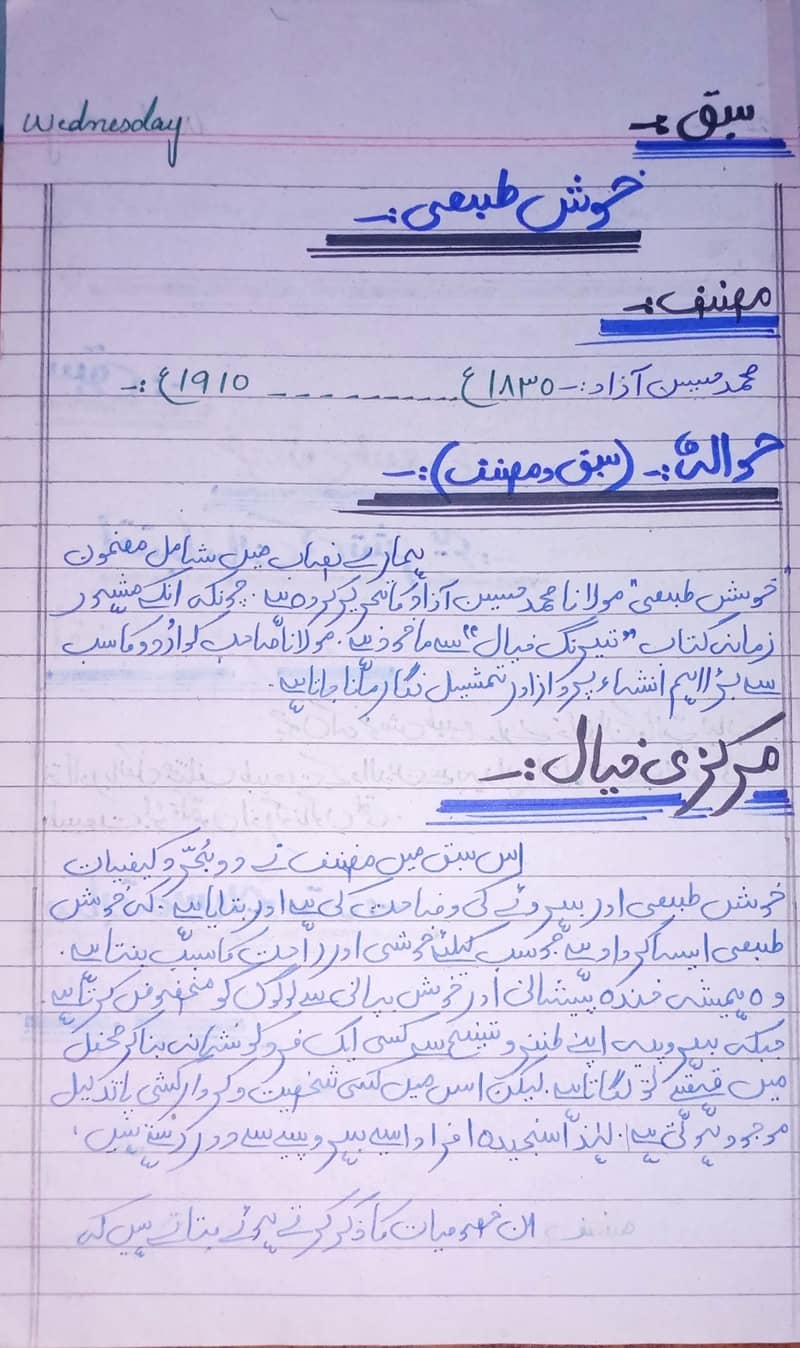 Wednesday
سبق :-
خوش طبعی :-
مصنف :-
محمد حسین آزاد :- ۱۸۳۰ع --------- ۱۹۱۰ع :-
حوالہ :- (سبق و مصنف) :-
ہمارے نصاب میں شامل مضمون
"خوش طبعی" مولانا محمد حسین آزاد کا تحریر کردہ ہے۔ چونکہ انکے مشہور
زمانہ کتاب "نیرنگ خیال" سے ماخوذ ہے۔ مولانا صاحب کو اُردو کا سب
سے بڑا اہم انشاء پرداز اور تمثیل نگار مانا جاتا ہے۔
مرکزی خیال :-
اس سبق میں مصنف نے دو کیفیات
خوش طبعی اور بہروپے کی وضاحت کی ہے اور بتایا ہے کہ خوش
طبعی ایسا کردار ہے جو سب کیلئے خوشی اور راحت کا سبب بنتا ہے۔
وہ ہمیشہ خندہ پیشانی اور خوش بیانی سے لوگوں کو محظوظ کرتا ہے۔
جبکہ بہروپیہ اپنے طنز و سے کسی ایک فرد کو نشانہ بنا کر محفل
میں قہقہے تو لگاتا ہے۔ لیکن اس میں کسی شخصیت و کردار کشی یا تذلیل
موجود ہوتی ہے۔ لہٰذا سنجیدہ افراد ایسے بہروپیے سے دور رہتے ہیں۔
ان خصوصیات کا ذکر کرتے ہوئے بتاتے ہیں کہ